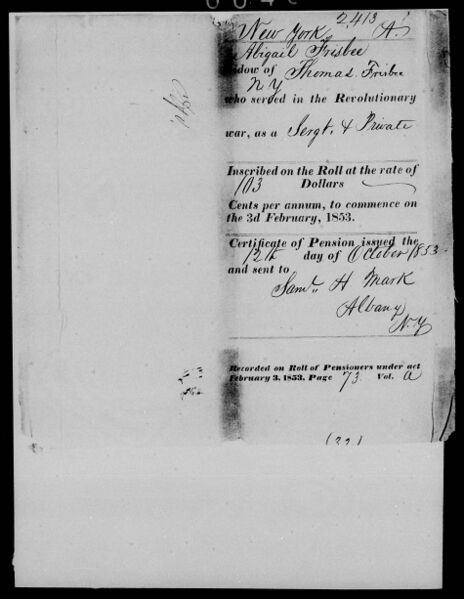 2413
New York A.
Abigail Frisbee
idow of Thomas Frisbee
N Y
who served in the Revolutionary
war, as a Sergt. & Private
Inscribed on the Roll at the rate of
103 Dollars
Cents per annum, to commence on
the 3d February, 1853.
Certificate of Pension issued the
12th day of October 1853
and sent to
Saml. H Mark
Albany
N.Y
Recorded on Roll of Pensioners under act
February 3, 1853, Page 73 Vol. A